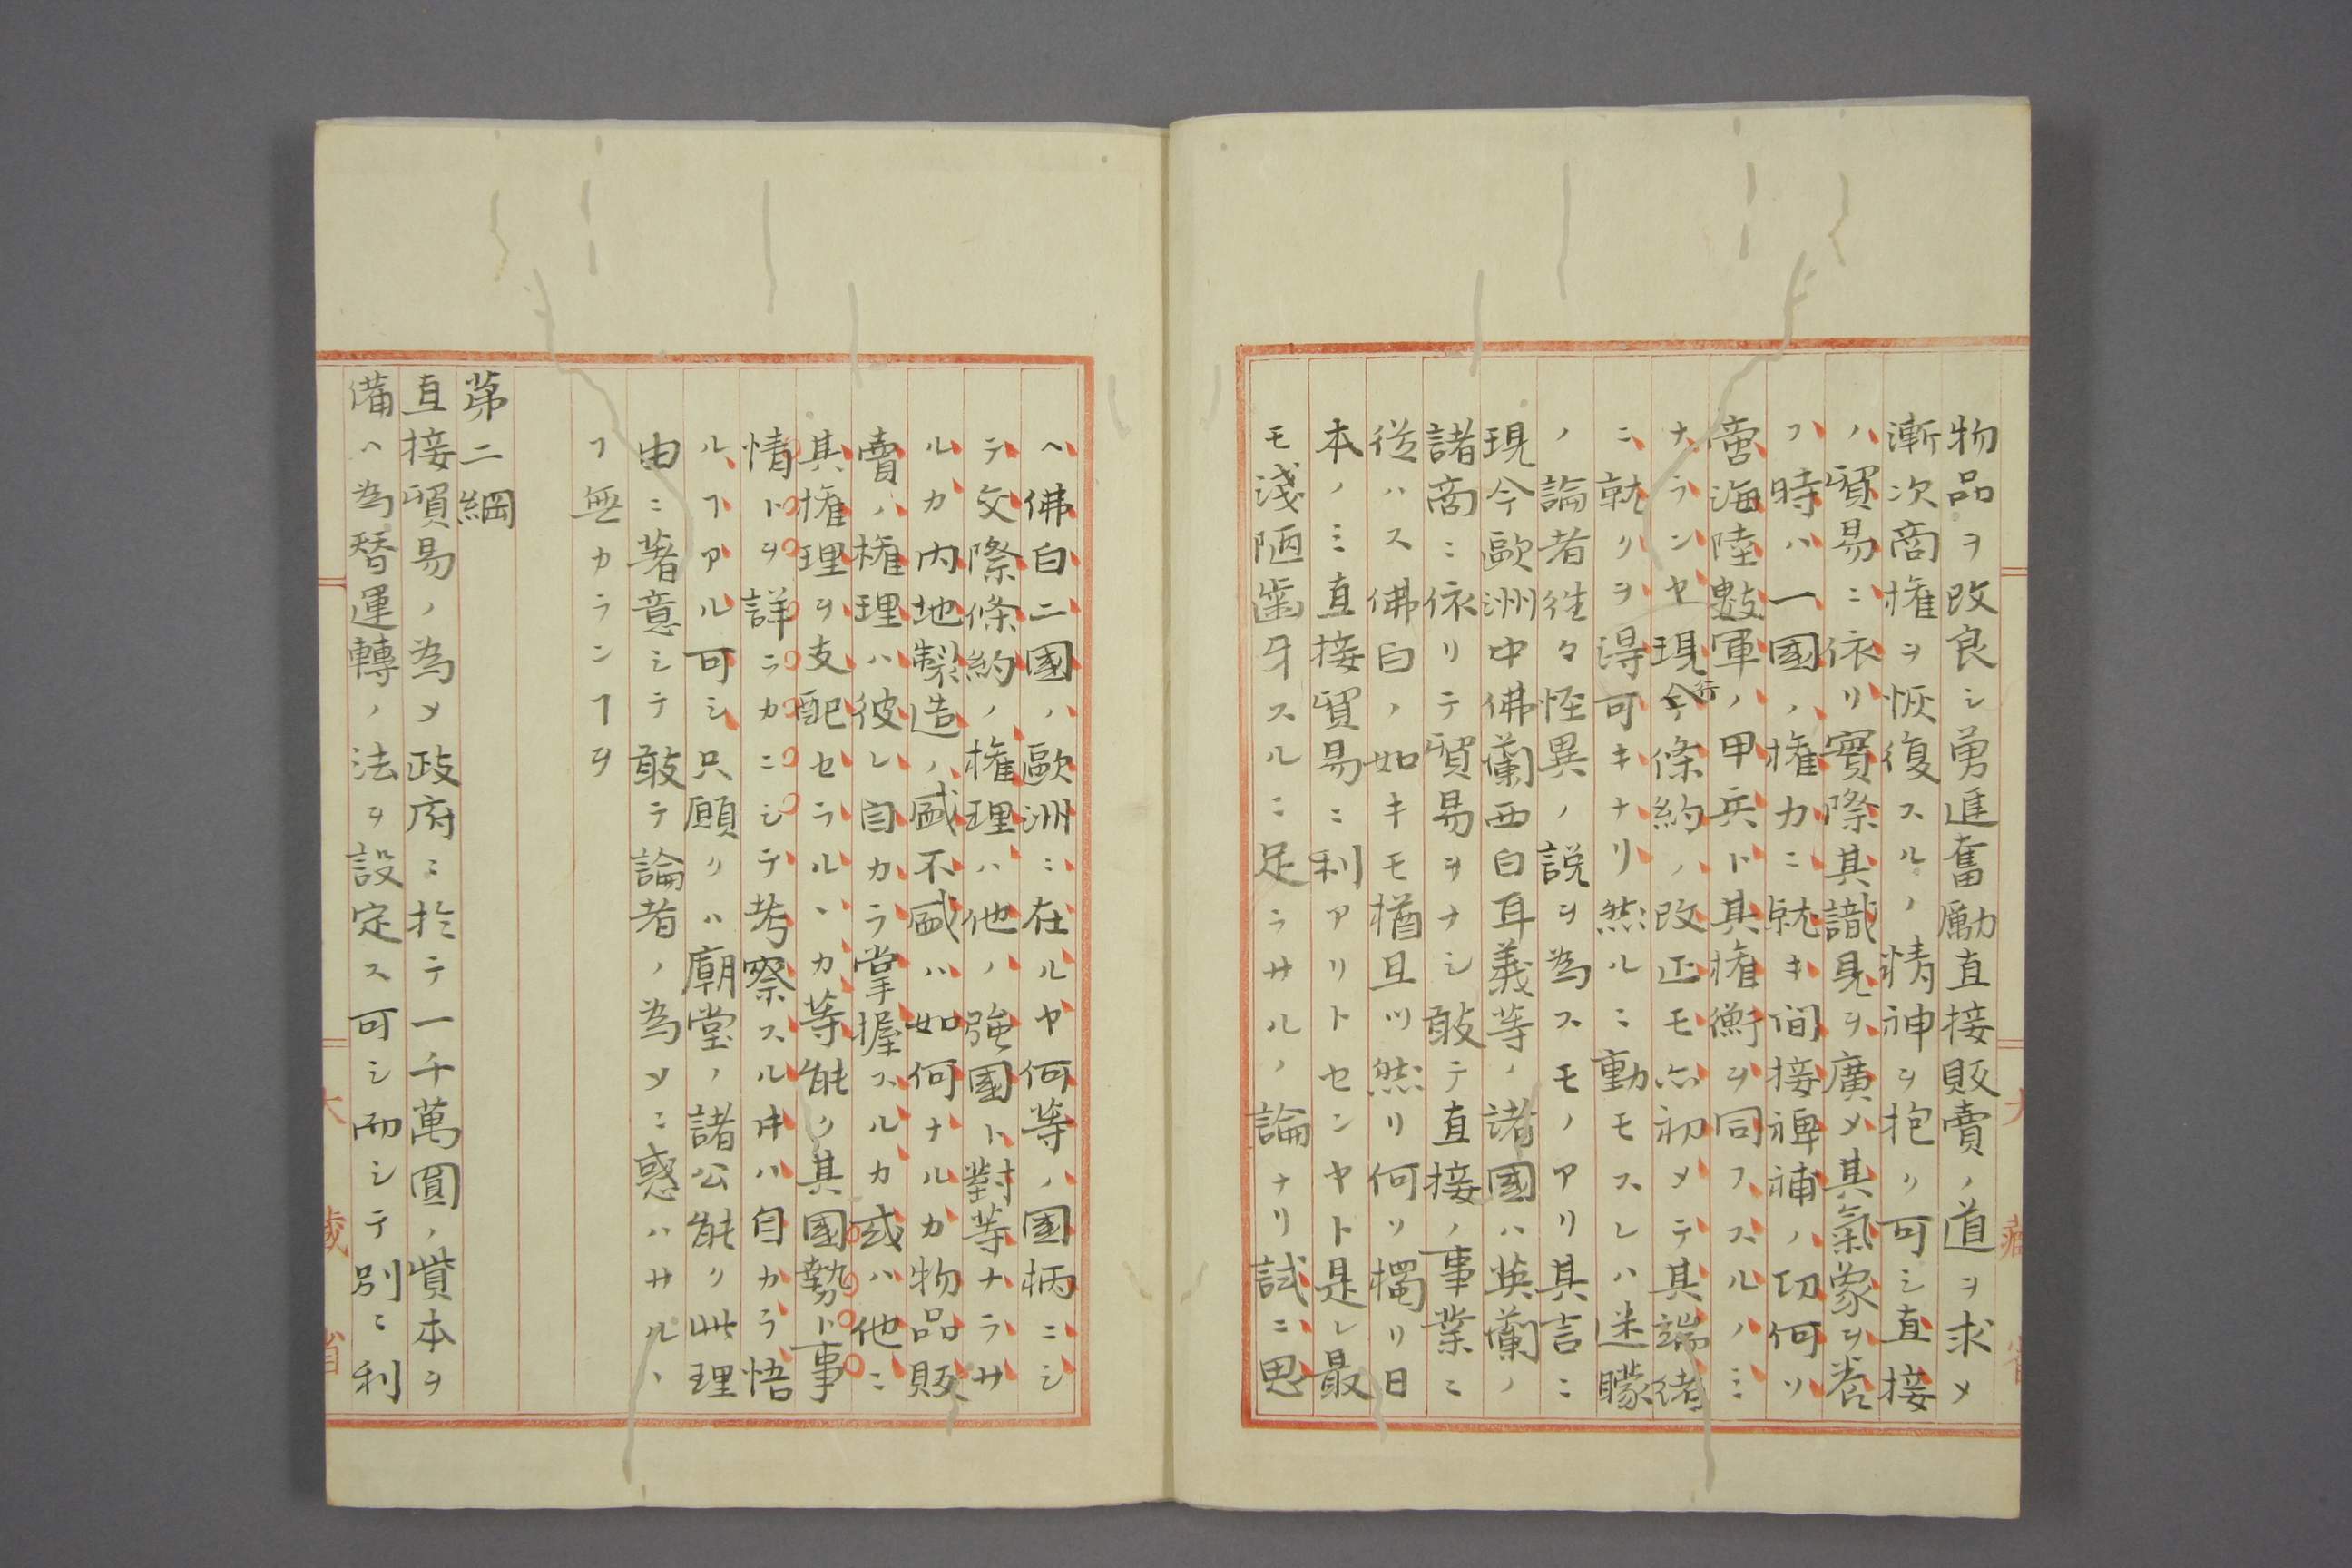 物品ヲ改良シ勇進奮勵直接販賣ノ道ヲ求メ
漸次商権ヲ恢復スルノ精神ヲ抱ク可シ直接
ノ貿易ニ依リ實際其識見ヲ廣メ其氣象ヲ養
フ時ハ一國ノ権カニ就キ間接裨補ノ功何ソ
啻海陸數軍ノ甲兵ト其権衡ヲ同フスルノミ
ナランヤ現行條約ノ改正モ亦初メテ其端緒
ニ就クヲ得可キナリ然ルニ動モスレハ迷矇
ノ論者徃々怪異ノ説ヲ為スモノアリ其言ニ
現今歐洲中佛蘭西白耳義等ノ諸國ハ英蘭ノ
諸商ニ依リテ貿易ヲナシ敢テ直接ノ事業ニ
從ハス佛白ノ如キモ猶且ツ然リ何ソ獨リ日
本ノミ直接貿易ニ利アリトセンヤト是レ最
モ淺陋歯牙スルニ足ラサルノ論ナリ試ニ思
ヘ佛白二國ノ歐洲ニ在ルヤ何等ノ國柄ニシ
テ交際條約ノ権理ハ他ノ強國ト對等ナラサ
ルカ内地製造ノ盛不盛ハ如何ナルカ物品販
賣ノ権理ハ彼レ自カラ掌握スルカ或ハ他ニ
其権理ヲ支配セラルヽカ等能ク其國勢ト事
情トヲ詳ラカニシテ考察スル井ハ自カラ悟
ルヿアル可シ只願クハ廟堂ノ諸公能ク此理
由ニ著意シテ敢テ論者ノ為メニ惑ハサルヽ
ヿ無カランヿヲ
苐二綱
直接貿易ノ為メ政府ニ於テ一千萬圓ノ貲本ヲ
備ヘ為替運轉ノ法ヲ設定ス可シ而シテ別ニ利
大藏省